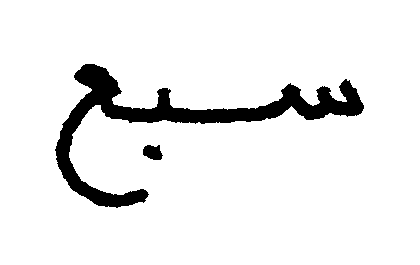 سبع